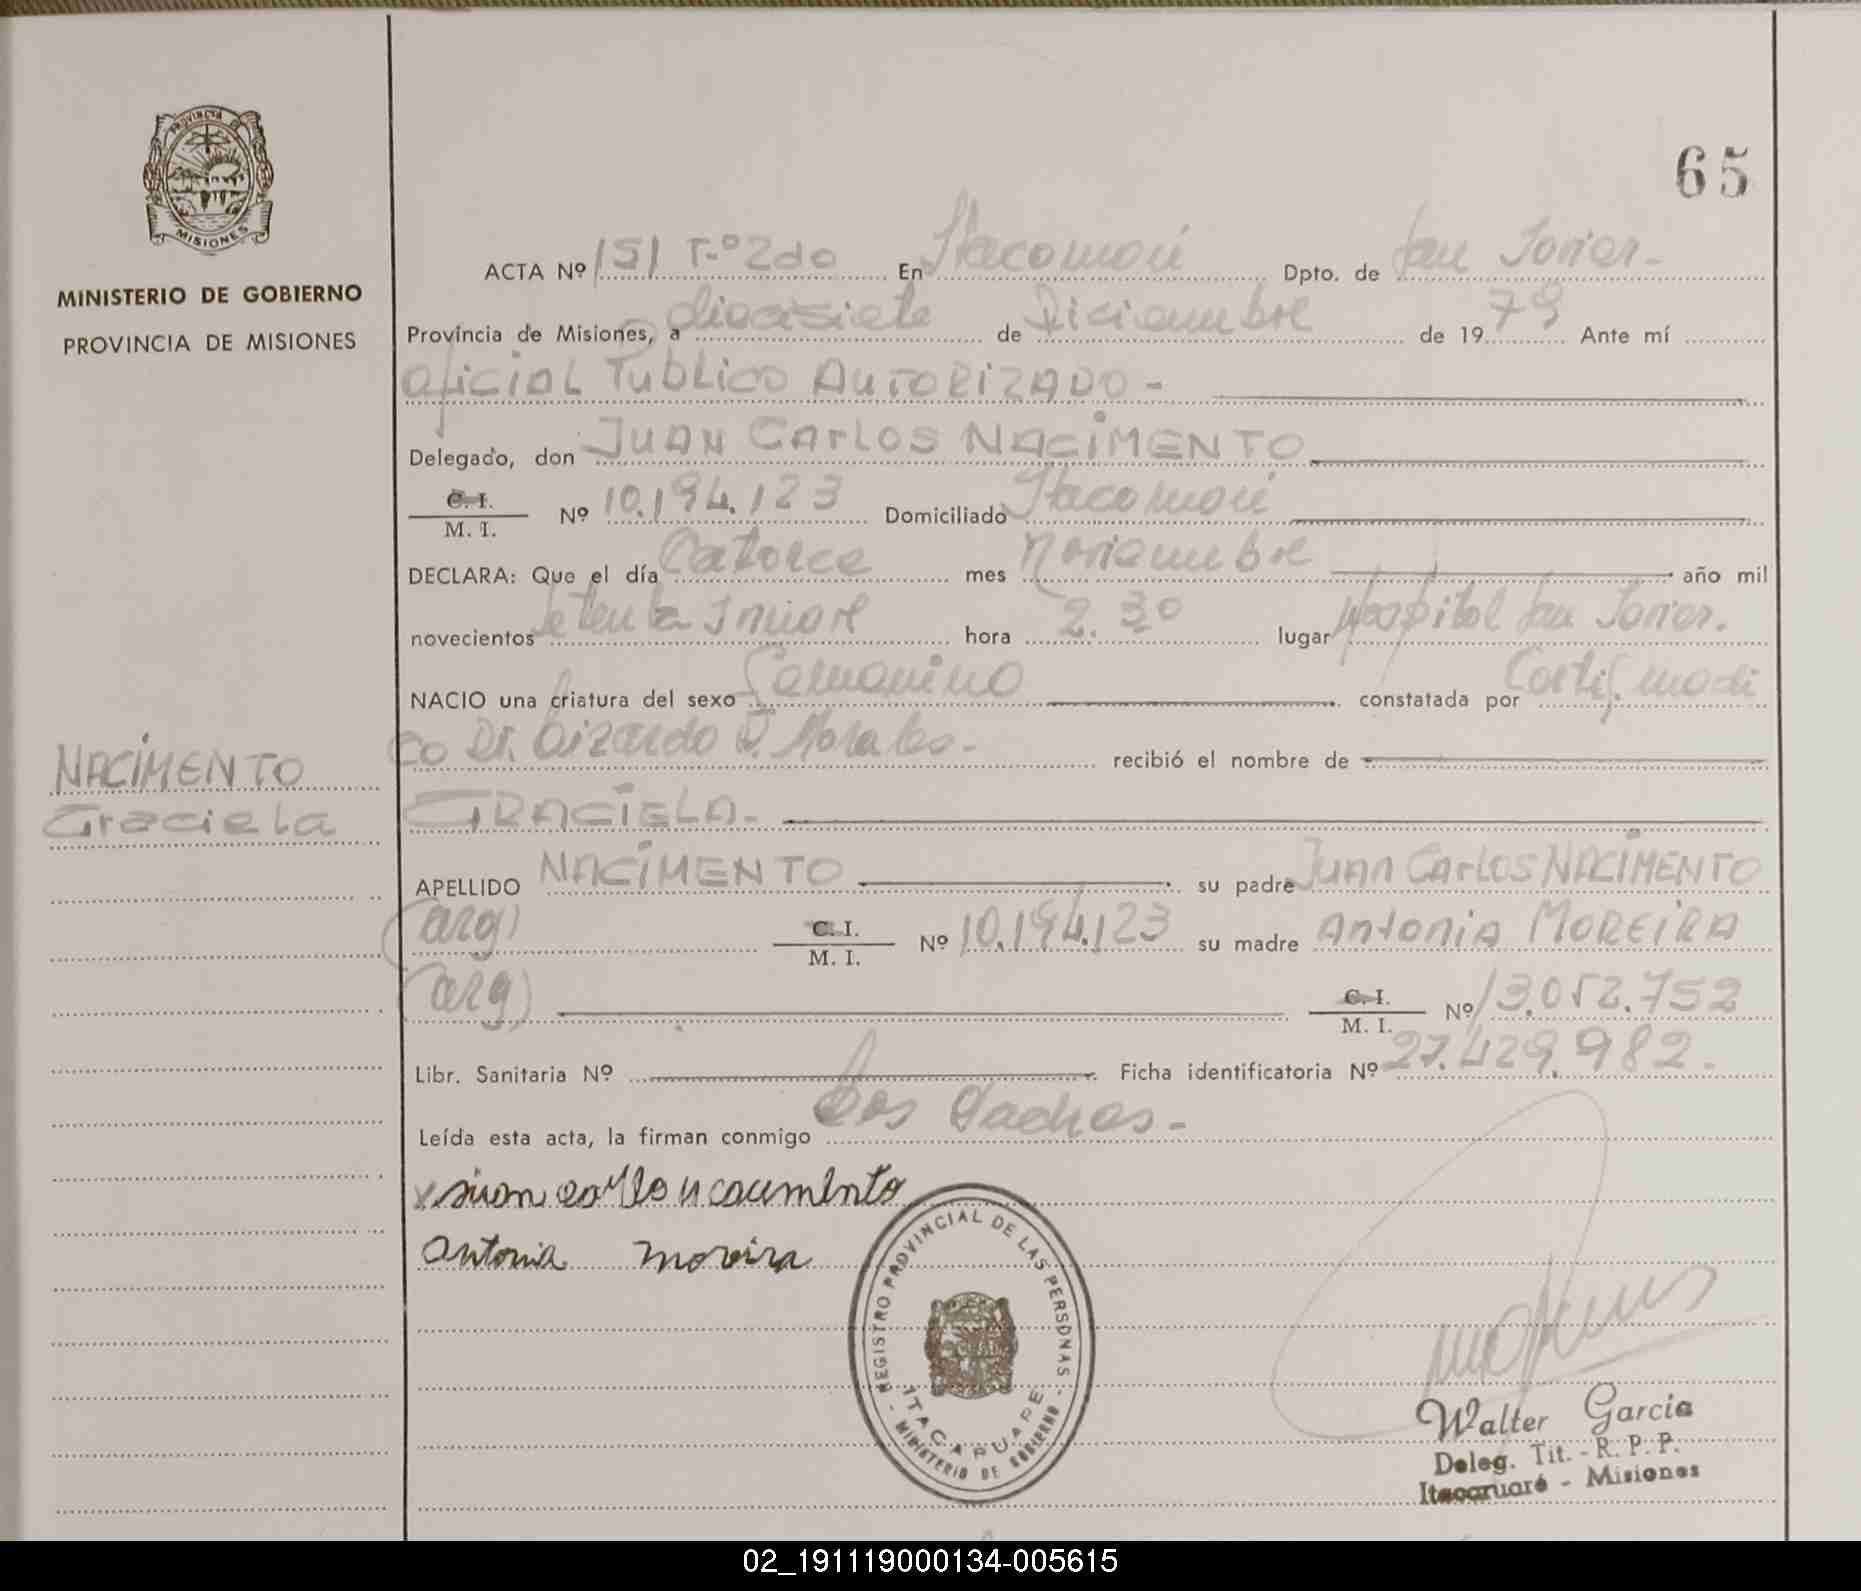 PROVINCIA DE
MISIONES
MINISTERIO DE GOBIERNO
PROVINCIA DE MISIONES
NACIMENTO
Graciela
65
ACTA Nº 151 T.º 2do En Itacaruaré Dpto. de San Javier.-
Provincia de Misiones, a diecisiete de Diciembre de 1979 Ante mí
Oficial Publico AUTORIZADO -
Delegado, don JUAN CARLOS NACIMENTO
C. I.
M. I. Nº 10.194.123 Domiciliado Itacaruaré
DECLARA: Que el día Catorce mes Noviembre año mil
novecientos setenta y nueve hora 2.30 lugar Hospital San Javier.
NACIO una criatura del sexo Femenino constatada por Certif. medi
co Dr. Morales.- recibió el nombre de
GRACIELA.-
APELLIDO NACIMENTO su padre Juan Carlos NACIMENTO
(arg) C. I.
M. I. Nº 10.194.123 su madre Antonia MOREIRA
(arg) C. I.
M. I. Nº 13.052.752
Libr. Sanitaria Nº Ficha identificatoria Nº 27.429.982.-
Leída esta acta, la firman conmigo Los Padres.-
x Juan carlo nacimento
Antonia moreira
- REGISTRO PROVINCIAL DE LAS PERSONAS -
ITACARUARE
MINISTERIO DE GOBIERNO
Walter Garcia
Deleg. Tit. - R. P. P.
Itacaruaré - Misiones
02_191119000134-005615